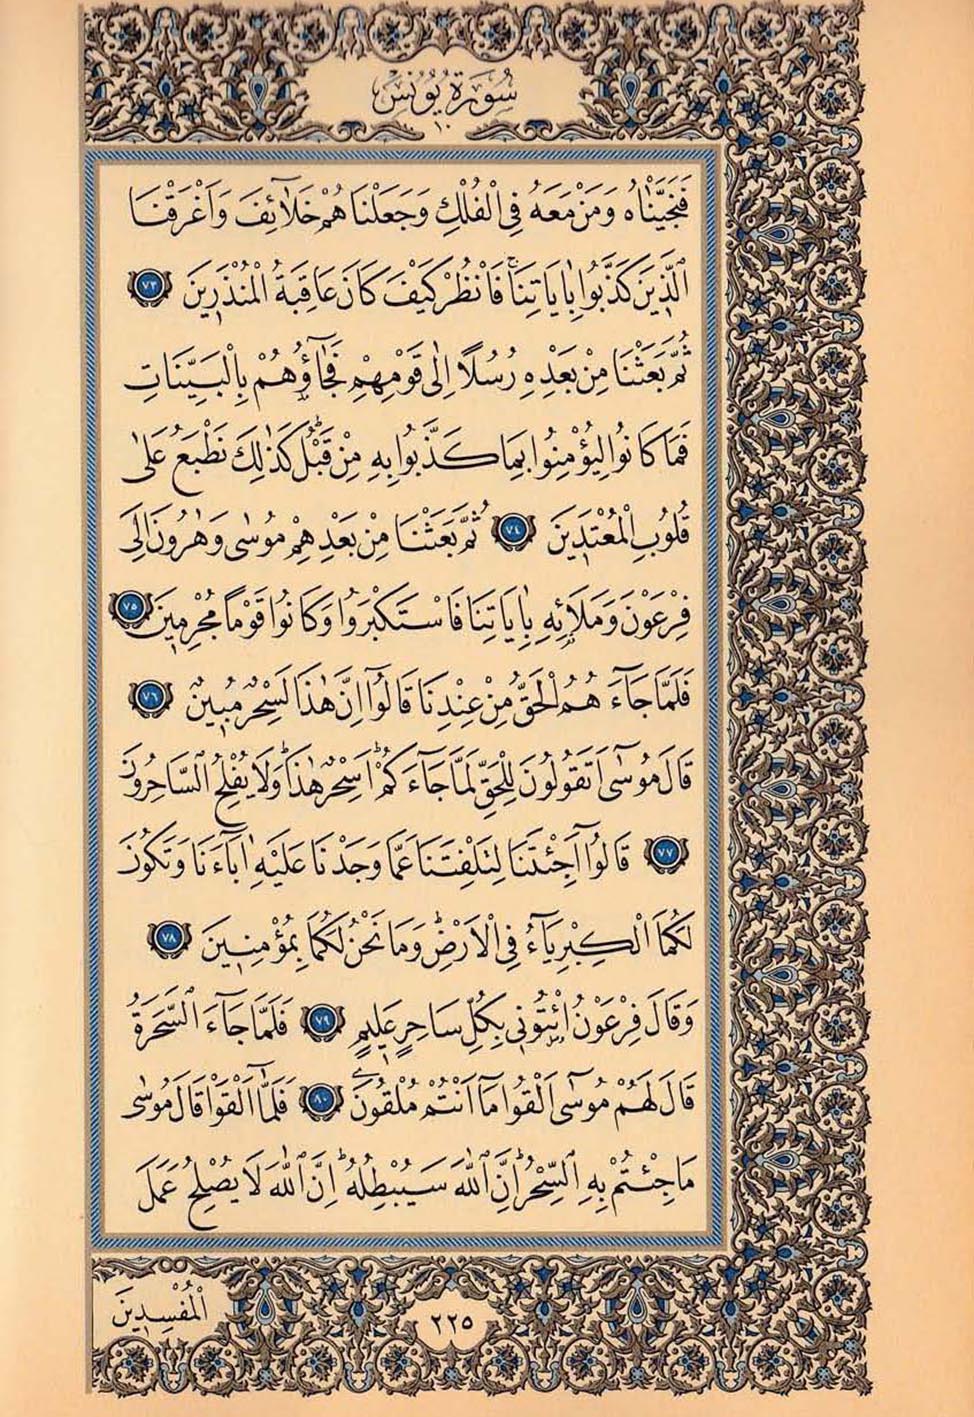 سُورَةُ يُونُسَ
١٠
فَنَجَّيْنَاهُ وَمَنْ مَعَهُ فِي الْفُلْكِ وَجَعَلْنَاهُمْ خَلَٓائِفَ وَاَغْرَقْنَا
الَّذ۪ينَ كَذَّبُوا بِاٰيَاتِنَاۚ فَانْظُرْ كَيْفَ كَانَ عَاقِبَةُ الْمُنْذَر۪ينَ ٧٣
ثُمَّ بَعَثْنَا مِنْ بَعْدِه۪ رُسُلًا اِلٰى قَوْمِهِمْ فَجَٓاؤُ۫هُمْ بِالْبَيِّنَاتِ
فَمَا كَانُوا لِيُؤْمِنُوا بِمَا كَذَّبُوا بِه۪ مِنْ قَبْلُۜ كَذٰلِكَ نَطْبَعُ عَلٰى
قُلُوبِ الْمُعْتَد۪ينَ ٧٤ ثُمَّ بَعَثْنَا مِنْ بَعْدِهِمْ مُوسٰى وَهٰرُونَ اِلٰى
فِرْعَوْنَ وَمَلَا۬ئِه۪ بِاٰيَاتِنَا فَاسْتَكْبَرُوا وَكَانُوا قَوْمًا مُجْرِم۪ينَ ٧٥
فَلَمَّا جَٓاءَهُمُ الْحَقُّ مِنْ عِنْدِنَا قَالُٓوا اِنَّ هٰذَا لَسِحْرٌ مُب۪ينٌ ٧٦
قَالَ مُوسٰٓى اَتَقُولُونَ لِلْحَقِّ لَمَّا جَٓاءَكُمْۜ اَسِحْرٌ هٰذَاۜ وَلَا يُفْلِحُ السَّاحِرُونَ
٧٧ قَالُٓوا اَجِئْتَنَا لِتَلْفِتَنَا عَمَّا وَجَدْنَا عَلَيْهِ اٰبَٓاءَنَا وَتَكُونَ
لَكُمَا الْكِبْرِيَٓاءُ فِي الْاَرْضِۜ وَمَا نَحْنُ لَكُمَا بِمُؤْمِن۪ينَ ٧٨
وَقَالَ فِرْعَوْنُ ائْتُون۪ي بِكُلِّ سَاحِرٍ عَل۪يمٍ ٧٩ فَلَمَّا جَٓاءَ السَّحَرَةُ
قَالَ لَهُمْ مُوسٰٓى اَلْقُوا مَٓا اَنْتُمْ مُلْقُونَ ٨٠ فَلَمَّٓا اَلْقَوْا قَالَ مُوسٰى
مَا جِئْتُمْ بِهِ السِّحْرُۜ اِنَّ اللّٰهَ سَيُبْطِلُهُۜ اِنَّ اللّٰهَ لَا يُصْلِحُ عَمَلَ
الْمُفْسِد۪ينَ
٢٢٥